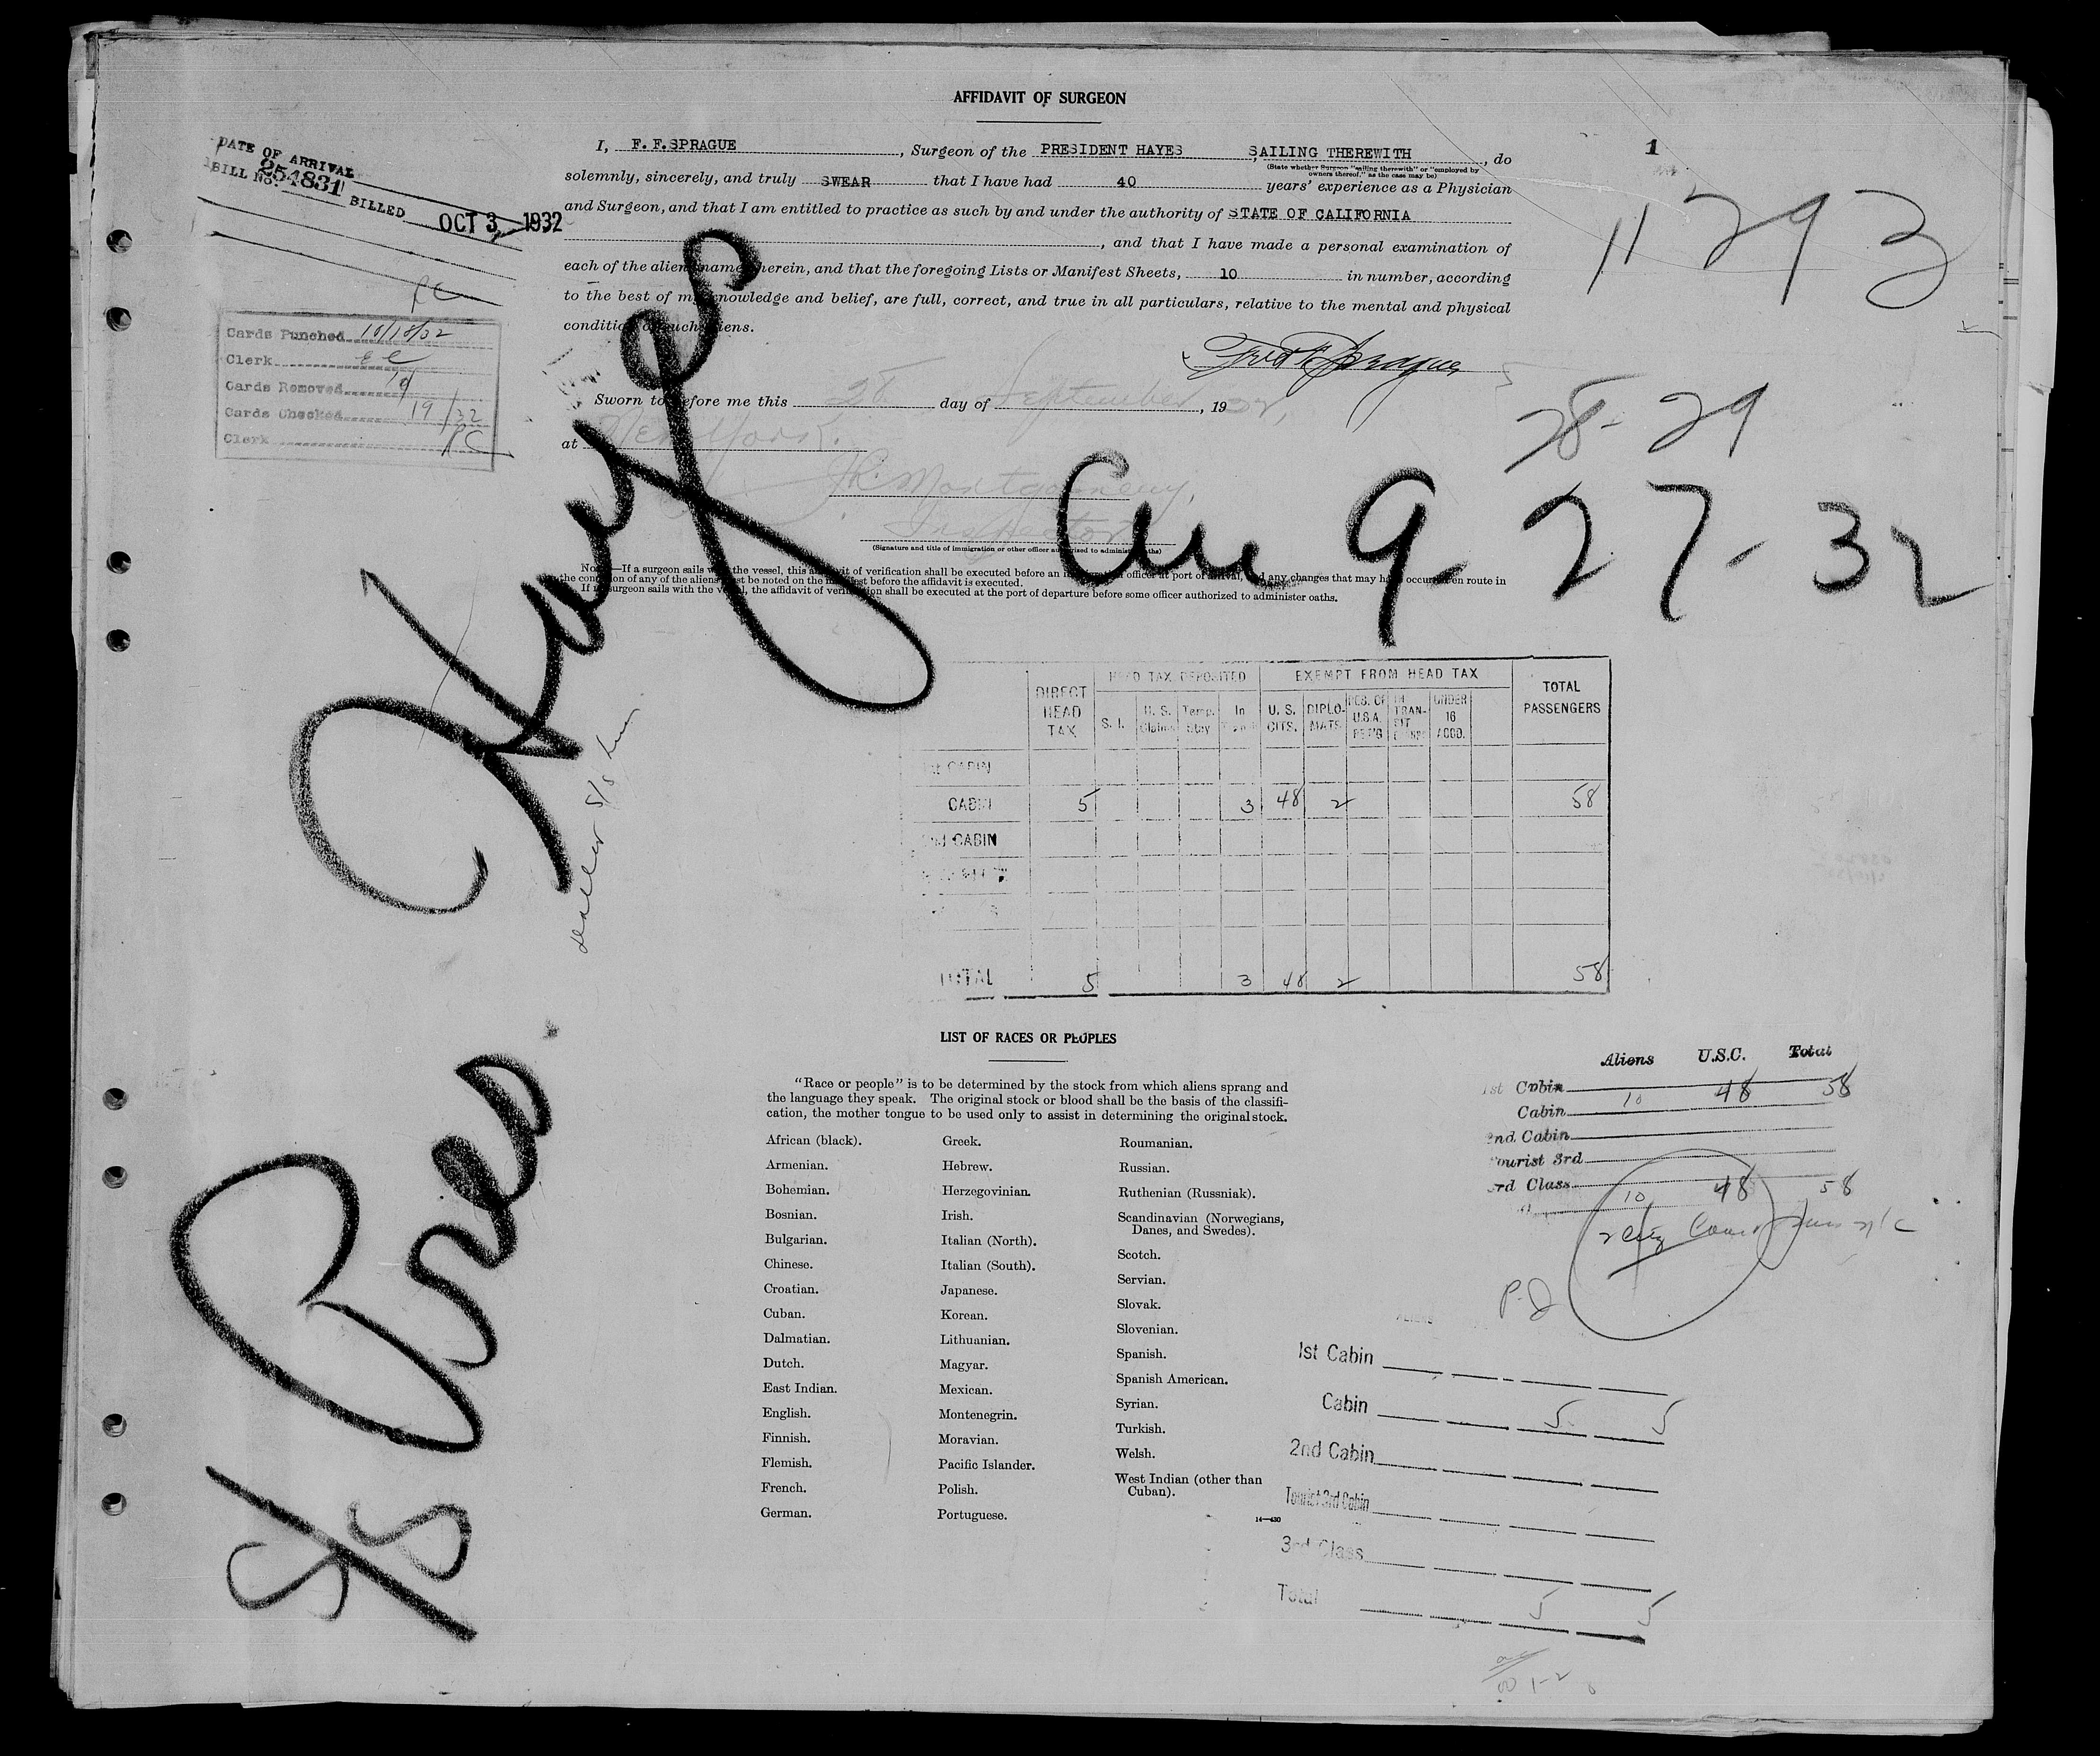 AFFIDAVIT OF SURGEON
DATE OF ARRIVAL
BILL No. 254831 BILLED OCT 3 1932
Cards Punched 10/18/32
Clerk
Cards Removed
Cards Checked 19/32
Clerk
I, F. F. SPRAGUE, Surgeon of the PRESIDENT HAYES, SAILING THEREWITH, do
(State whether Surgeon "sailing therewith" or "employed by
owners thereof," as the case may be)
solemnly, sincerely, and truly SWEAR that I have had 40 years' experience as a Physician
and Surgeon, and that I am entitled to practice as such by and under the authority of STATE OF CALIFORNIA
, and that I have made a personal examination of
each of the aliens named herein, and that the foregoing Lists or Manifest Sheets, 10 in number, according
to the best of my knowledge and belief, are full, correct, and true in all particulars, relative to the mental and physical
condition of such aliens.
1
11293
Fred F. Sprague
Sworn to before me this 28 day of September, 1932,
at New York.
28-29
Montgomery,
Inspector
(Signature and title of immigration or other officer authorized to administer oaths)
9-27-32
NOTE.—If a surgeon sails with the vessel, this affidavit of verification shall be executed before an immigration officer at port of arrival, and any changes that may have occurred en route in
the condition of any of the aliens must be noted on the manifest before the affidavit is executed.
If no surgeon sails with the vessel, the affidavit of verification shall be executed at the port of departure before some officer authorized to administer oaths.
S/S Pres. Hayes
DIRECT HEAD TAX
HEAD TAX DEPOSITED
EXEMPT FROM HEAD TAX
TOTAL PASSENGERS
S. I. U. S. Claims Temp. Stay In Transit U. S. CITS. DIPLO-MATS RES. OF U.S.A. RET'G IN TRAN-SIT UNDER 16 ACCD.
1st CABIN
CABIN 5 3 48 2 58
2nd CABIN
TOTAL 5 3 48 2 58
LIST OF RACES OR PEOPLES
"Race or people" is to be determined by the stock from which aliens sprang and
the language they speak. The original stock or blood shall be the basis of the classifi-
cation, the mother tongue to be used only to assist in determining the original stock.
African (black).
Armenian.
Bohemian.
Bosnian.
Bulgarian.
Chinese.
Croatian.
Cuban.
Dalmatian.
Dutch.
East Indian.
English.
Finnish.
Flemish.
French.
German.
Greek.
Hebrew.
Herzegovinian.
Irish.
Italian (North).
Italian (South).
Japanese.
Korean.
Lithuanian.
Magyar.
Mexican.
Montenegrin.
Moravian.
Pacific Islander.
Polish.
Portuguese.
Roumanian.
Russian.
Ruthenian (Russniak).
Scandinavian (Norwegians,
Danes, and Swedes).
Scotch.
Servian.
Slovak.
Slovenian.
Spanish.
Spanish American.
Syrian.
Turkish.
Welsh.
West Indian (other than
Cuban).
14—430
Aliens U.S.C. Total
1st Cabin
Cabin 10 48 58
2nd Cabin
Tourist 3rd
3rd Class
10 48 58
ALIENS
1st Cabin
Cabin 5 5
2nd Cabin
Tourist 3rd Cabin
3rd Class
Total 5 5